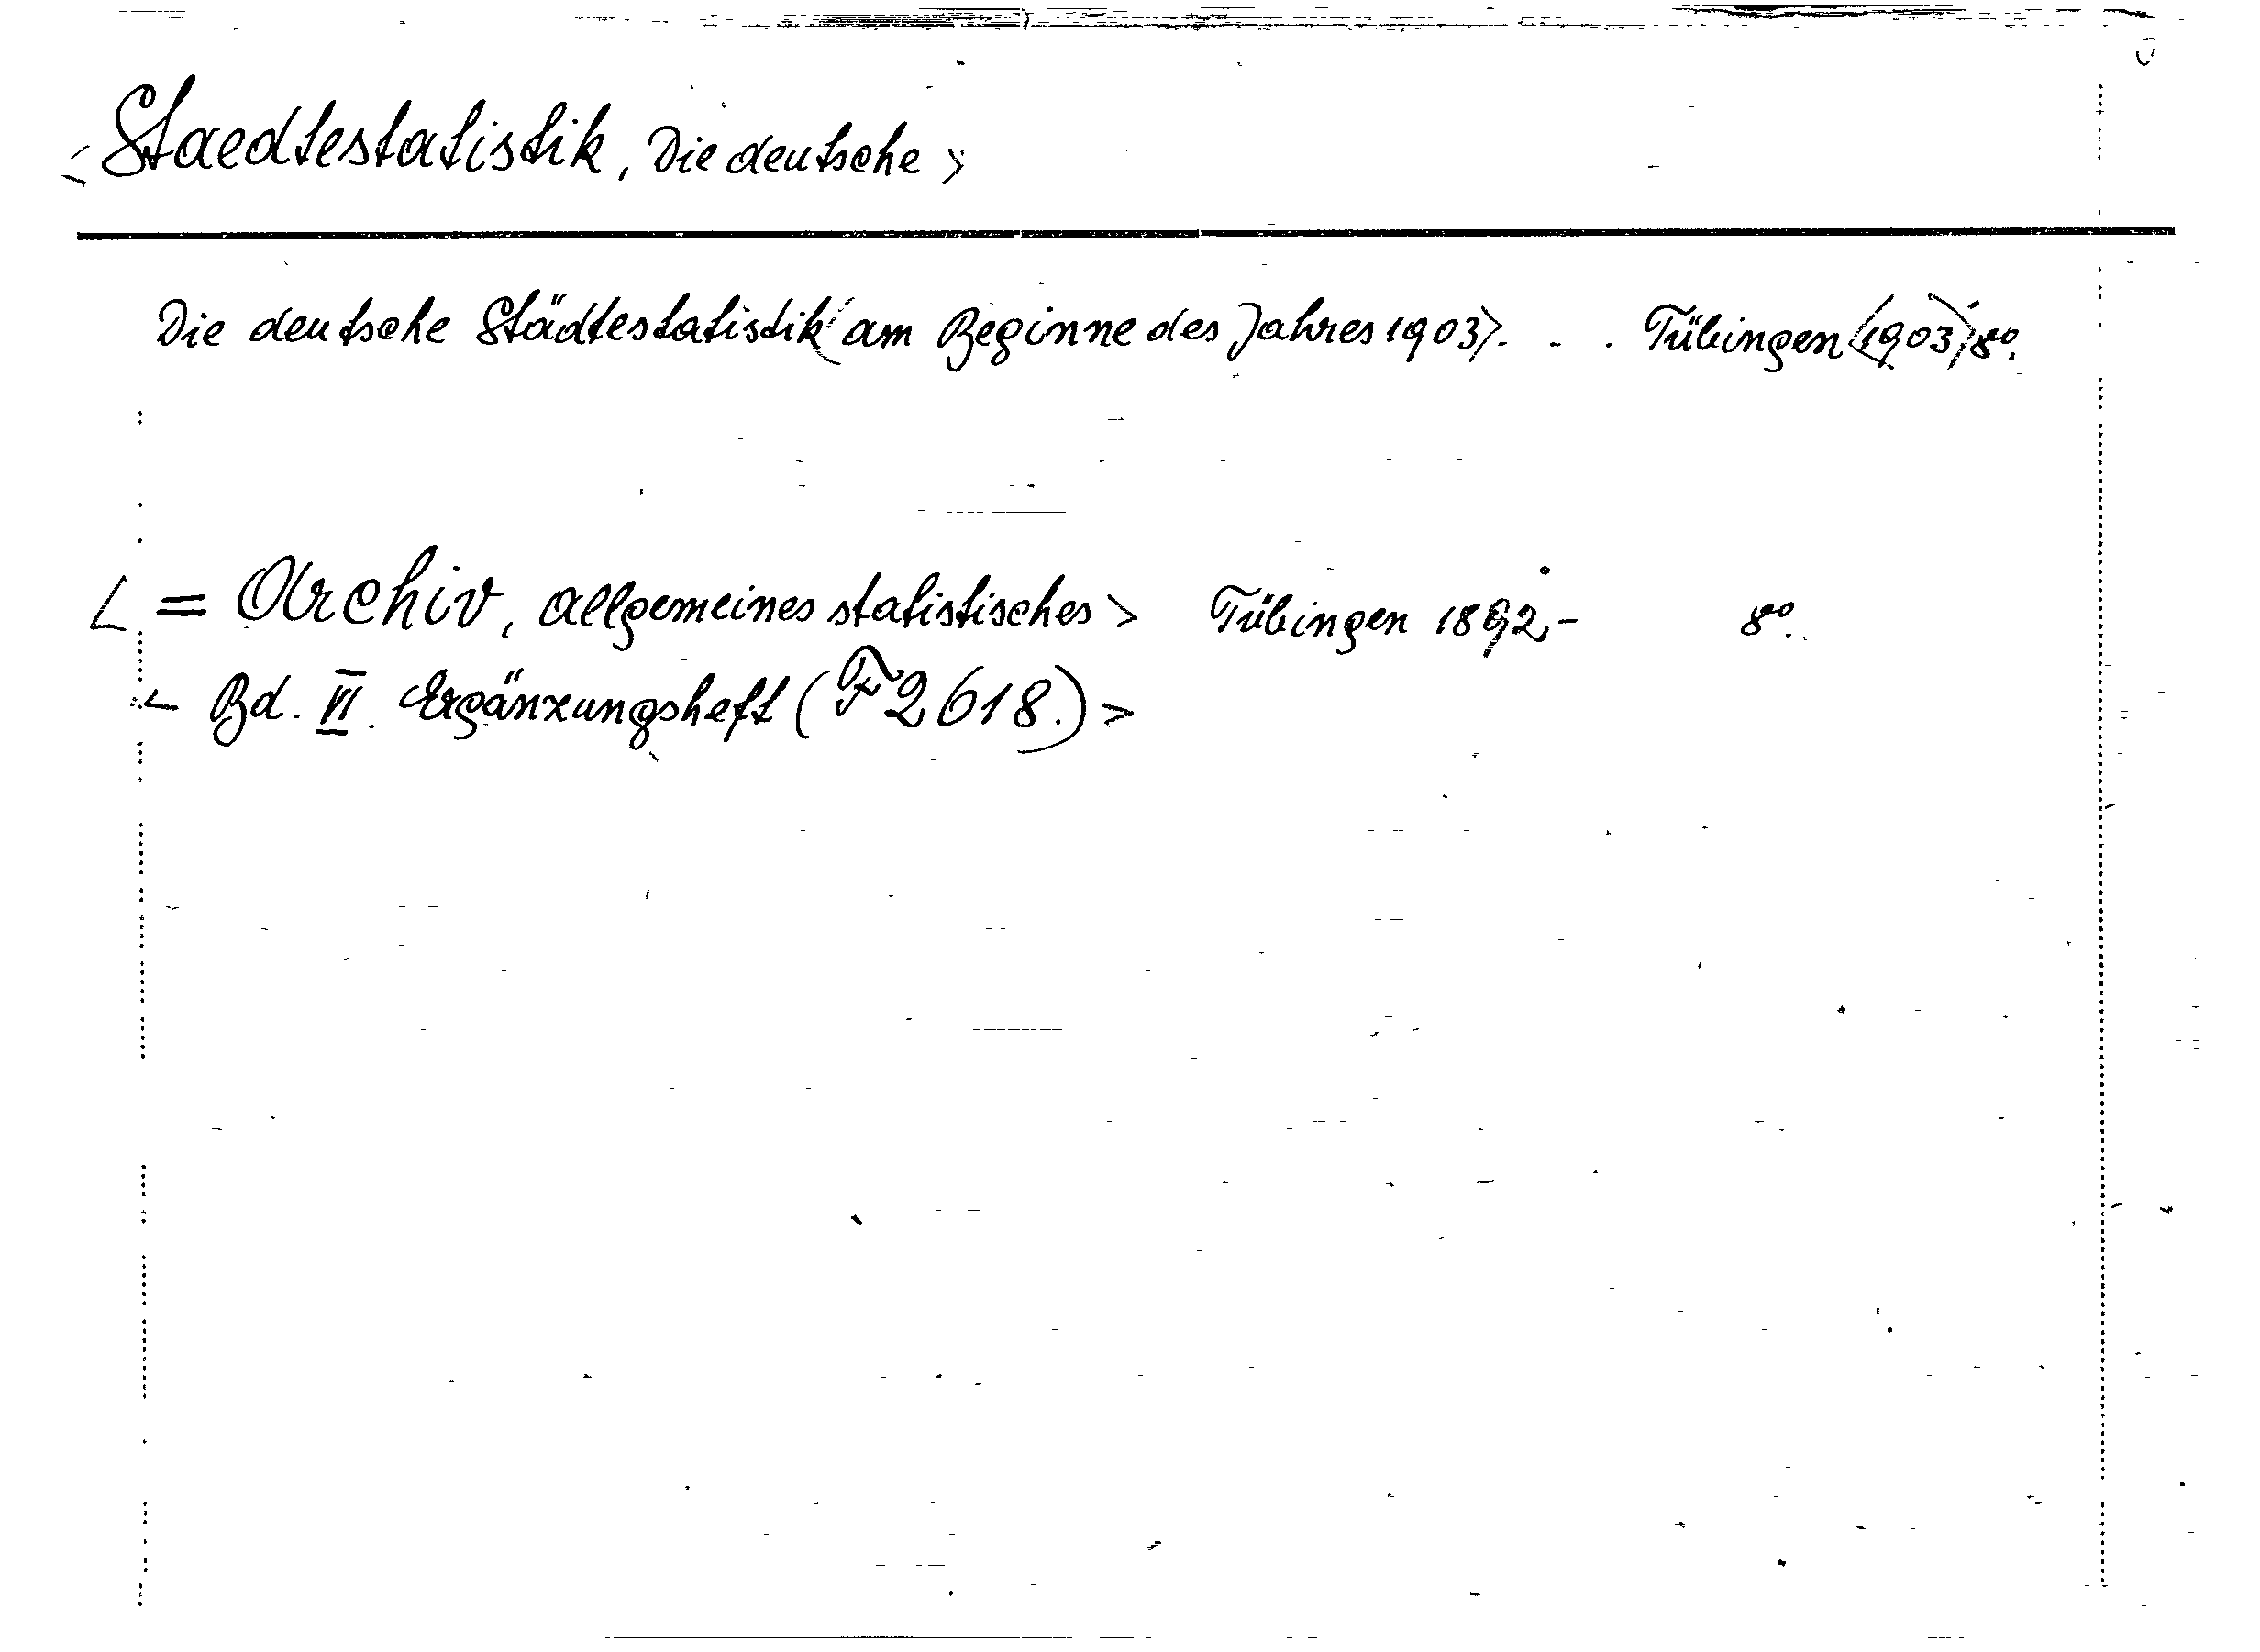 <Staedtestatistik, Die deutsche>
Die deutsche Städtestatistik <am Beginne des Jahres 1903>. . . Tübingen <1903> 8°.
<= Archiv, allgemeines statistisches> Tübingen 1892,- 8°.
< Bd. VI. Ergänzungsheft (F2618.)>